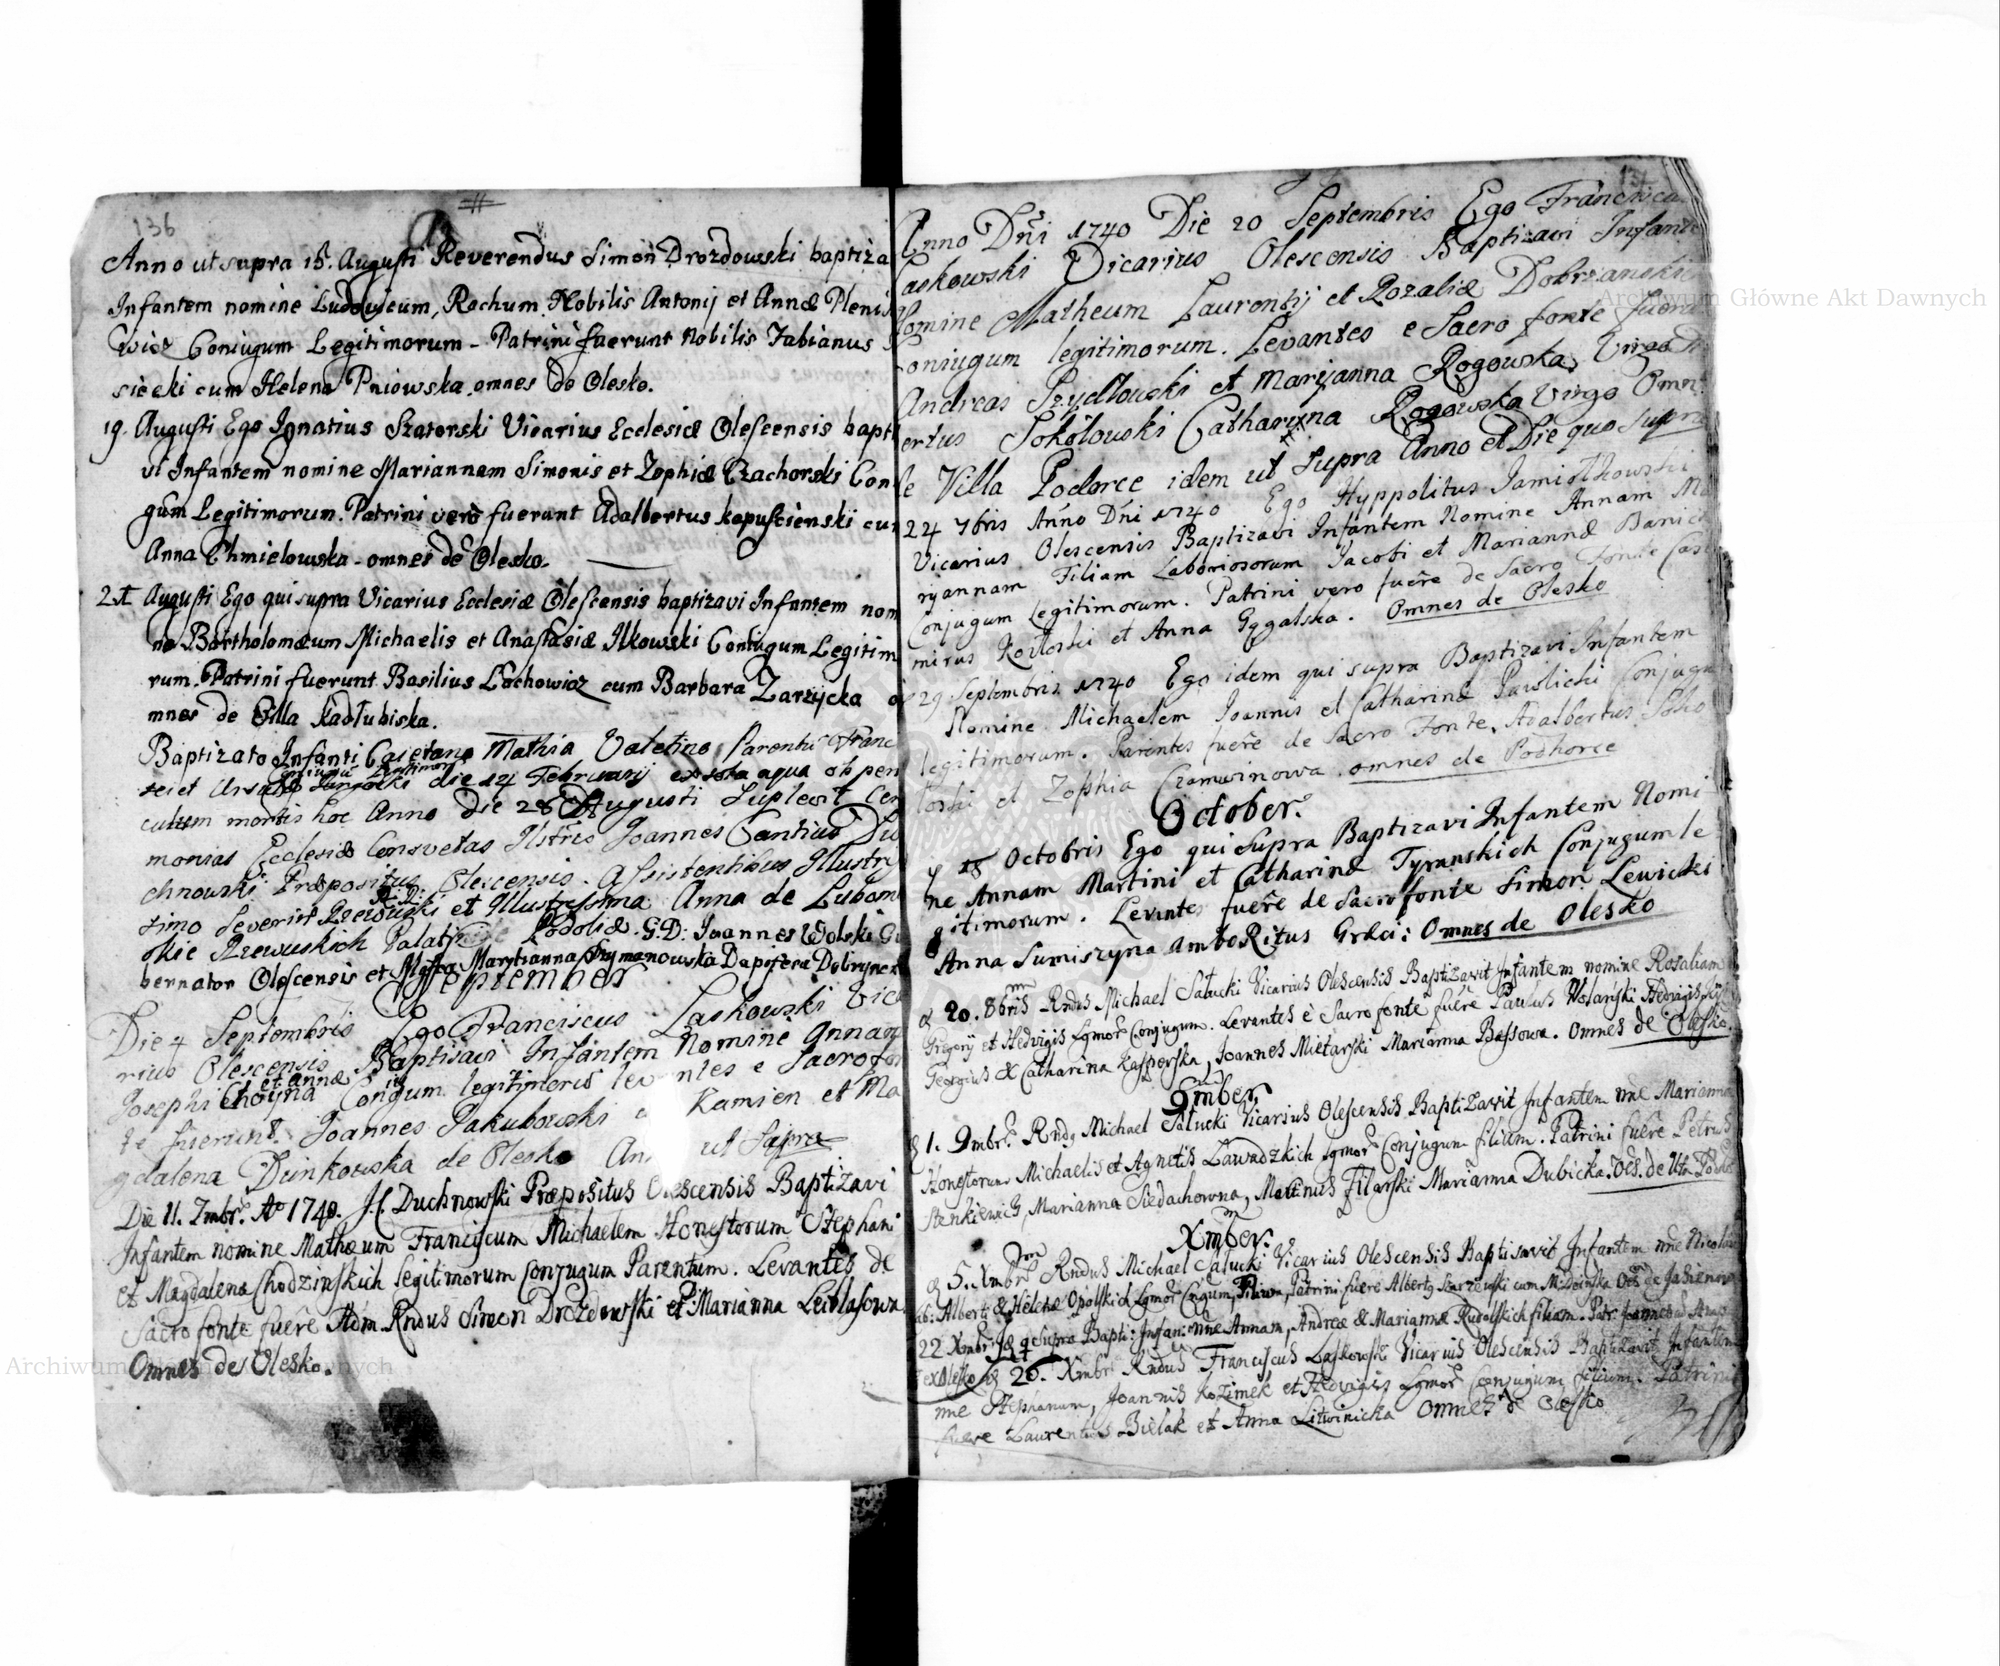 136
Anno ut supra 15. Augusti Reverendus Simon Drozdowski baptiza
Infantem nomine Ludovicum, Rochum Nobilis Antonij et Annæ Pleni
wicz Coniugum Legitimorum - Patrini fuerunt Nobilis Fabianus
siecki cum Helena Pniowska omnes de Olesko.
19. Augusti Ego Ignatius Szatorski Vicarius Ecclesiæ Olescensis bapti
vi Infantem nomine Mariannam Simonis et Zophiæ Czachorski Con
gum Legitimorum. Patrini vero fuerant Adalbertus Kapuscienski cum
Anna Chmielowska - omnes de Olesko.
24 Augusti Ego qui supra Vicarius Ecclesiæ Olescensis baptizavi Infantem nom
ne Bartholomæum Michaelis et Anastasiæ Ilkowski Coniugum Legitim
rum. Patrini fuerunt Basilius Lechowicz cum Barbara Zarzycka o
mnes de Villa Kadłubiska.
Baptizato Infanti Casetano Mathia Valetino Parentū Franc
Coniugū Legitimorū
die 14 Februarij ex sola aqua ob peri
culum mortis hoc Anno die 28 Augusti Suplevit Cer
monias Ecclesiæ Consvetas Ilstris Joannes Cantius Du
chnowski Præpositus Olescensis. Assistentibus Illustris
simo Severino Rzewuski et Illustrissima Anna de Lubom
skie Rzewuskich Palatin Podoliæ. G.D. Joannes Wolski Gu
bernator Olescensis et Mgffca Maryanna Szymanowska Dapifera Dobrynen
September
Die 4 Septembris Ego Franciscus Laskowski Vica
rius Olescensis Baptisavi Infantem Nomine Annam
et annæ
Josephi Choyna Coniugum legitimoris levantes e Sacro fon
te fuerunt Joannes Jakubowski Kamien et Ma
gdalena Dunkowska de Olesko An ut Supra
Die 11. 7mbr. Ao 1740. J.C. Duchnowski Præpositus Olescensis Baptizavi
Infantem nomine Mathæum Franciscum Michaelem Honestorum Stephani
et Magdalenæ Chodzinskich legitimorum Conjugum Parentum. Levantes de
Sacro fonte fuere Adm. Rndus Simon Drozdowski et Marianna Leiblasowa
Omnes de Olesko.
Anno Dni 1740 Die 20 Septembris Ego Francisca
Laskowski Vicarius Olescensis Baptizavi Infante
Nomine Matheum Laurentij et Rozaliæ Dobrzanskich
Coniugum legitimorum. Levantes e Sacro fonte fuerunt
Andreas Szydłowski et Maryanna Rogowska Virgo
ertus Sokołowski Catharyna Rogowska Virgo Omn
de Villa Podorce idem ut Supra Anno et Die quo Supra
24 7bris Anno Dni 1740 Ego Hyppolitus Jamiołkowski
Vicarius Olescensis Baptizavi Infantem Nomine Annam Ma
ryannam Filiam Laboriosorum Jacobi et Mariannæ Banick
Conjugum Legitimorum. Patrini vero fuere de Sacro Fonte Casi
mirus Kozłoski et Anna Gggalska. Omnes de Olesko
29 Septembris 1740 Ego idem qui supra Baptizavi Infantem
Nomine Michaelem Joannis et Catharinæ Pawlicki Conjugu
legitimorum. Parentes fuere de Sacro Fonte, Adalbertus Soko
łoski et Zophia Czamuinowa. omnes de Podhorce
October
18 Octobris Ego qui Supra Baptizavi Infantem Nomi
ne Annam Martini et Catharinæ Tyranskich Conjugum le
gitimorum. Levantes fuere de Sacro fonte Simon Lewicki
Anna Sumiszyna ambo Ritus Græci: Omnes de Olesko
20. 8bris Rndus Michael Sałucki Vicarius Olescensis Baptizavit Infantem nomine Rosaliam
Gregorij et Hedvigis Lgmor Conjugum. Levantes è Sacro fonte fuere Paulus Wolański Hedvigis
Georgius & Catharina Kasperska, Joannes Mietarski Marianna Bassowa. Omnes de Olesko.
9mber.
1. 9mbr. Rndg Michael Sałucki Vicarius Olescensis Baptizavit Infantem nne Marianna
Honestorum Michaelis et Agnetis Zawadzkich Lgmor Conjugum filiam. Patrini fuere Petrus
Stenkiewicz, Marianna Siedachowna, Martinus Filarski Marianna Dubicka. Oes. de Villa
Xmber.
5. Xmbr. Rndus Michael Sałucki Vicarius Olescensis Baptisavit Infantem nne Nicolau
Lab: Alberti & Helenæ Opolskich Lgmor Cngum, Filium, Patrini fuere Albertg Skarzewski cum de Jasienow
22 Xmbr. Id q Supra Bapti: Infan: nne Annam, Andreæ & Mariannæ Rudolskich filiam. Patr Joannes
ex Olesko 26. Xmbr Rndus Franciscus Laskowski Vicarius Olescensis Baptizavit Infantem
nne Stephanum, Joannis Kozimek et Hedvigis Lgmor Conjugum filium. Patrini
fuere Laurentius Bielak et Anna Litwinicka Omnes de Olesko
Archiwum Główne Akt Dawnych
Archiwum Główne Akt Dawnych